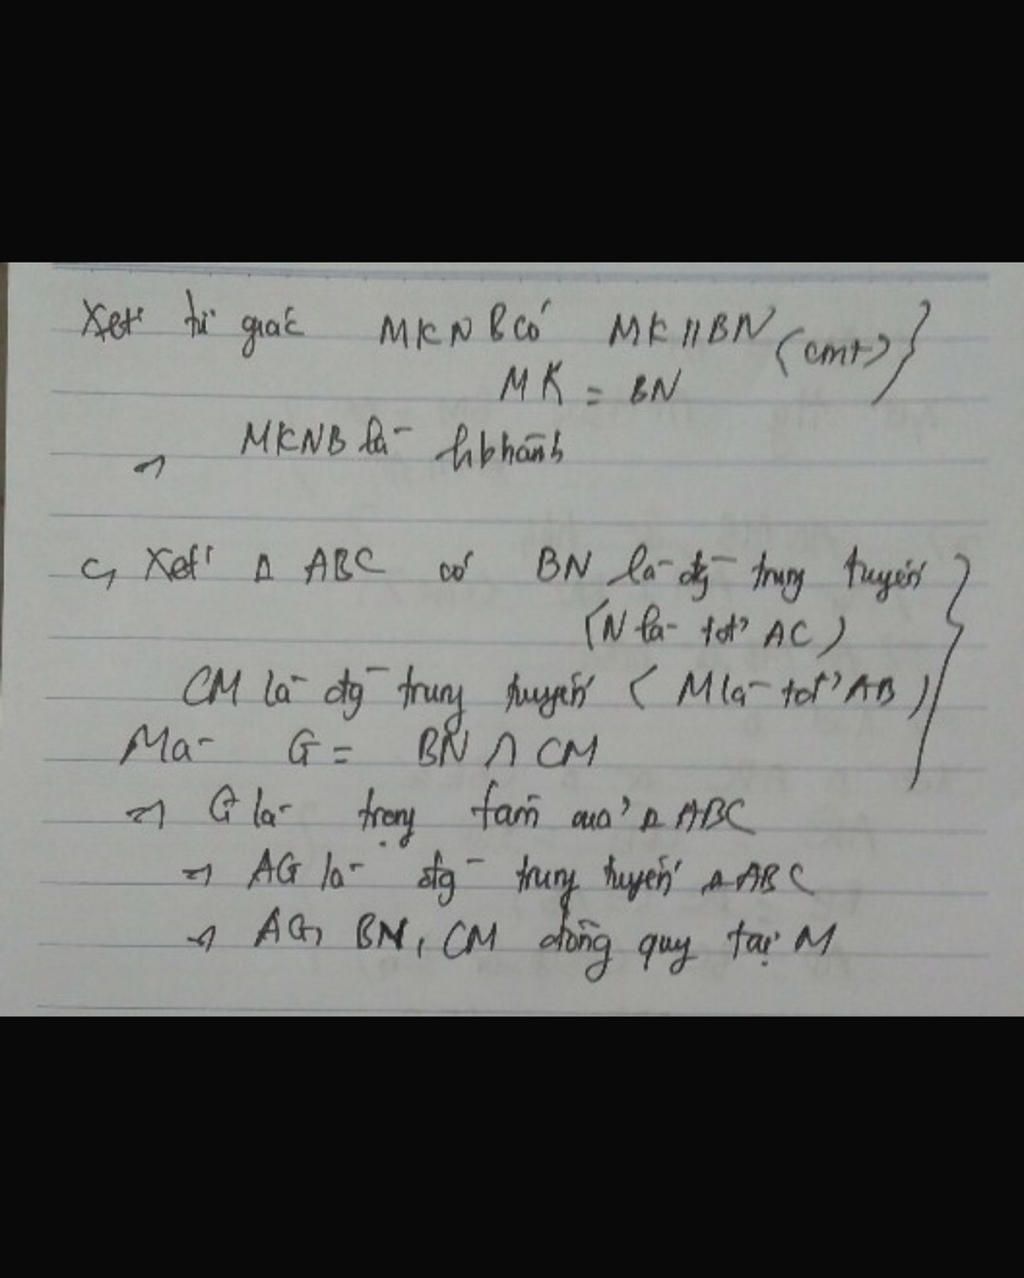 Xét tứ giác MKNB có MK // BN (cmt) }
MK = BN
⇒ MKNB là hbhành
c, Xét Δ ABC có BN là đg trung tuyến }
(N là tđ' AC)
CM là đg trung tuyến (M là tđ' AB)
Mà G = BN ∩ CM
⇒ G là trọng tâm của Δ ABC
⇒ AG là đg trung tuyến Δ ABC
⇒ AG, BN, CM đồng quy tại M